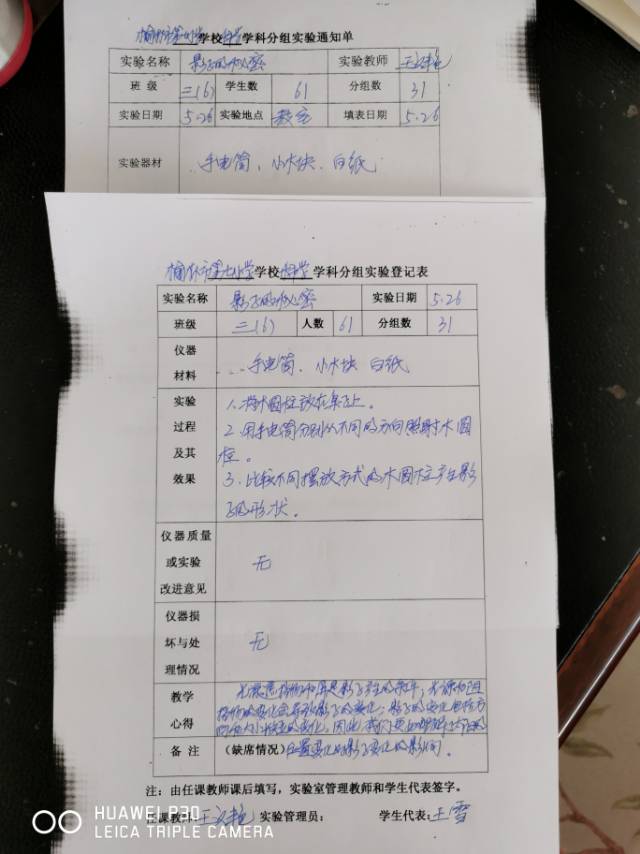 榆林市第七小学学校科学学科分组实验通知单
实验名称 影子的秘密 实验教师
班 级 三(6) 学生数 61 分组数 31
实验日期 5.26 实验地点 教室 填表日期 5.26
实验器材 手电筒、小木块、白纸
榆林市第七小学学校科学学科分组实验登记表
实验名称 影子的秘密 实验日期 5.26
班级 三(6) 人数 61 分组数 31
仪器
材料
手电筒、小木块 白纸
实验
过程
及其
效果
1、将木圆柱放在桌子上。
2、用手电筒分别从不同的方向照射木圆
柱。
3、比较不同摆放方式的木圆柱产生影
子的形状。
仪器质量
或实验
改进意见
无
仪器损
坏与处
理情况
无
教学
心得
光源、遮挡物和屏是影子产生的条件,光源和遮
挡物的变化会导致影子的变化;影子的变化包括方
备 注 (缺席情况) 位置变化对影子变化的影响。
注:由任课教师课后填写,实验室管理教师和学生代表签字。
任课教师: 实验管理员: 学生代表:王雪
HUAWEI P30
LEICA TRIPLE CAMERA